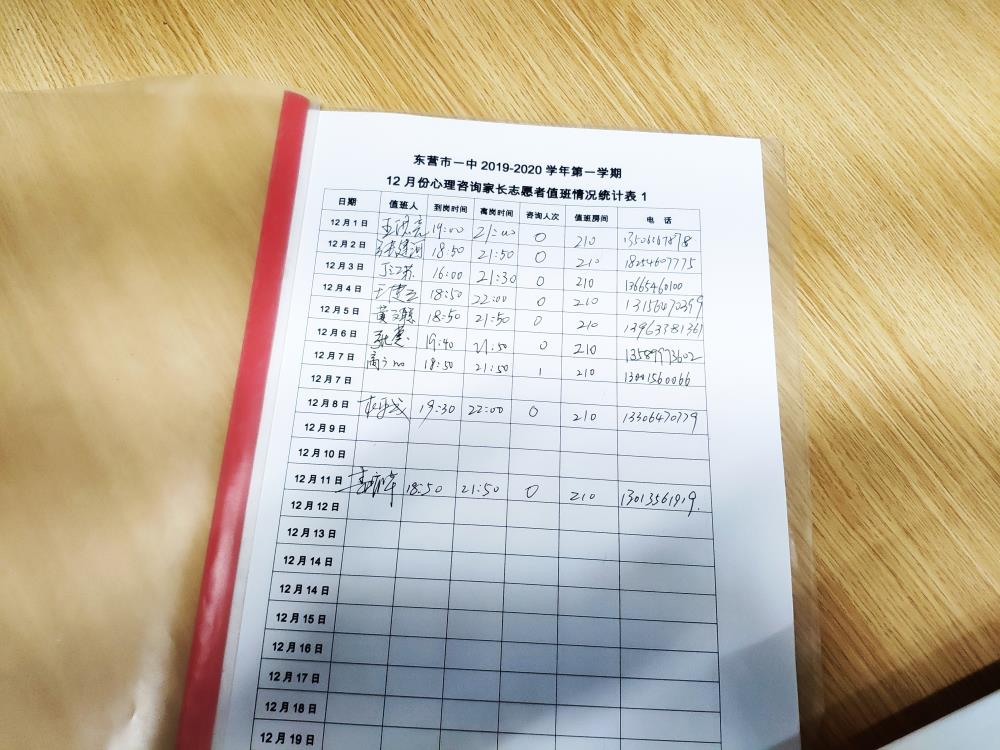 东营市一中 2019-2020 学年第一学期
12 月份心理咨询家长志愿者值班情况统计表 1
日期 值班人 到岗时间 离岗时间 咨询人次 值班房间 电 话
12 月 1 日 19:00 21:00 0 210
12 月 2 日 18:50 21:50 0 210 18254607775
12 月 3 日 丁江苏 16:00 21:30 0 210 13665460100
12 月 4 日 18:50 22:00 0 210
12 月 5 日 18:50 21:50 0 210 13963381361
12 月 6 日 19:40 21:50 0 210 13589973602
12 月 7 日 18:50 21:50 1 210
12 月 7 日
12 月 8 日 19:30 22:00 0 210
12 月 9 日
12 月 10 日
12 月 11 日 18:50 21:50 0 210 13013561919.
12 月 12 日
12 月 13 日
12 月 14 日
12 月 14 日
12 月 15 日
12 月 16 日
12 月 17 日
12 月 18 日
12 月 19 日